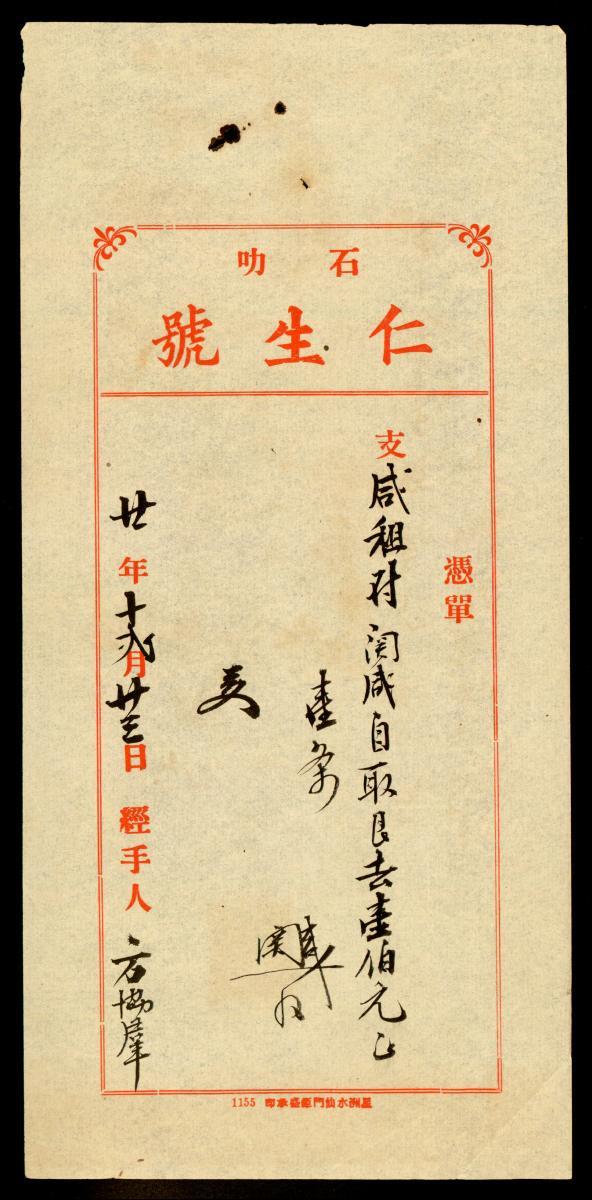 石叻
仁生號
憑單
支咸租对関咸自取艮去壹伯元正
壹条
関咸
廿年十弍月廿三日 經手人 方協羣
星洲水仙門 承印 1155